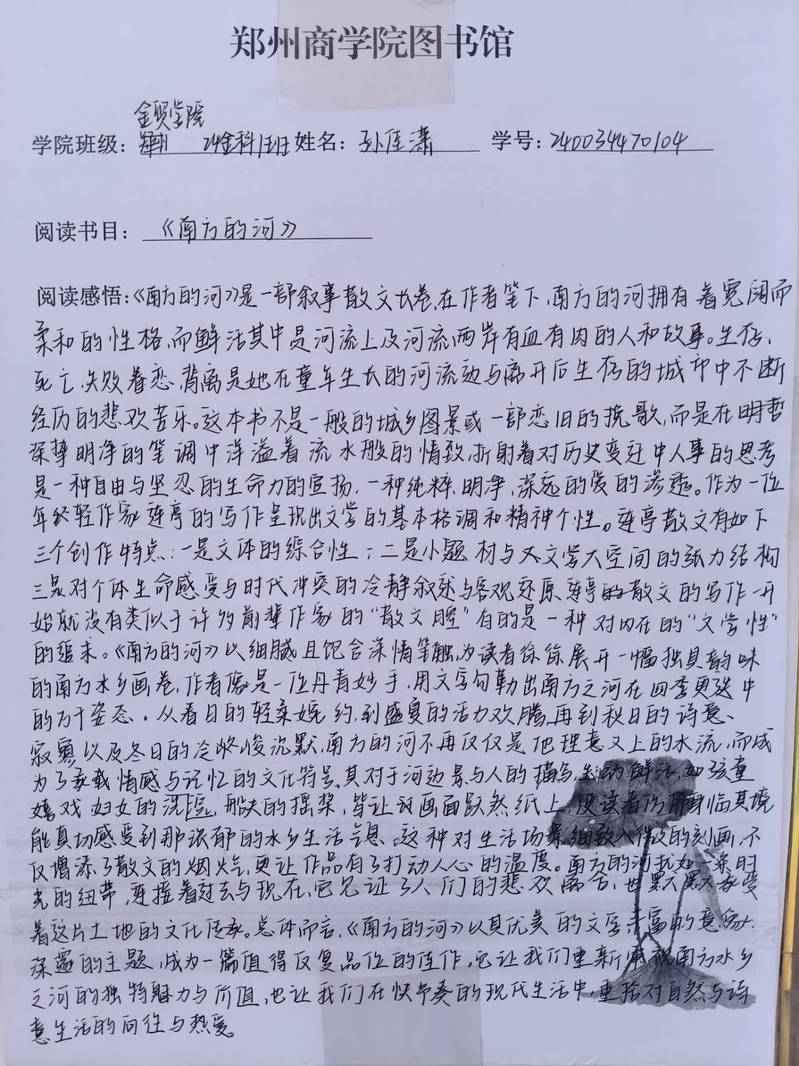 郑州商学院图书馆
金贸学院
学院班级: 24金科1班 姓名: 孙佳潇 学号: 240034470104
阅读书目: 《南方的河》
阅读感悟:《南方的河》是一部叙事散文长卷,在作者笔下,南方的河拥有着宽阔而
柔和的性格,而鲜活其中是河流上及河流两岸有血有肉的人和故事。生存、
死亡、失败眷恋、背离是她在童年生长的河流边与离开后生存的城市中不断
经历的悲欢苦乐。这本书不是一般的城乡图景或一部恋旧的挽歌,而是在明哲
深挚明净的笔调中洋溢着流水般的情致,折射着对历史变迁中人事的思考
是一种自由与坚忍的生命力的宣扬,一种纯粹、明净,深远的爱的渗透。作为一位
年轻作家连亭的写作呈现出文学的基本格调和精神个性。连亭散文有如下
三个创作特点:一是文体的综合性;二是小题材与大文学大空间的张力结构
三是对个体生命感受与时代冲突的冷静叙述与客观还原连亭的散文的写作一开
始就没有类似于许多前辈作家的“散文腔”有的是一种对内在的“文学性”
的追求。《南方的河》以细腻且饱含深情笔触,为读者徐徐展开一幅独具韵味
的南方水乡画卷,作者像是一位丹青妙手,用文字勾勒出南方之河在四季更迭中
的万千姿态。从春日的轻柔婉约,到盛夏的活力欢腾,再到秋日的诗意、
寂寥以及冬日的冷峻沉默,南方的河不再仅仅是地理意义上的水流,而成
为了承载情感与记忆的文化符号。其对于河边景与人的描写,生动鲜活,如孩童
嬉戏妇女的洗,船夫的摇桨,皆让画面跃然纸上,使读者仿佛身临其境
能真切感受到那浓郁的水乡生活气息。这种对生活场景细致入微的刻画,不
仅增添了散文的烟火气,更让作品有了打动人心的温度。南方的河我如一条时
光的纽带,连接着过去与现在,它见证了人们的悲欢离合,也默默承受
着这片土地的文化传承。总体而言,《南方的河》以其优美的文字丰富的意象、
深邃的主题,成为一篇值得反复品位的佳作,它让我们重新审视南方水乡
之河的独特魅力与价值,也让我们在快节奏的现代生活中,重拾对自然与诗
意生活的向往与热爱